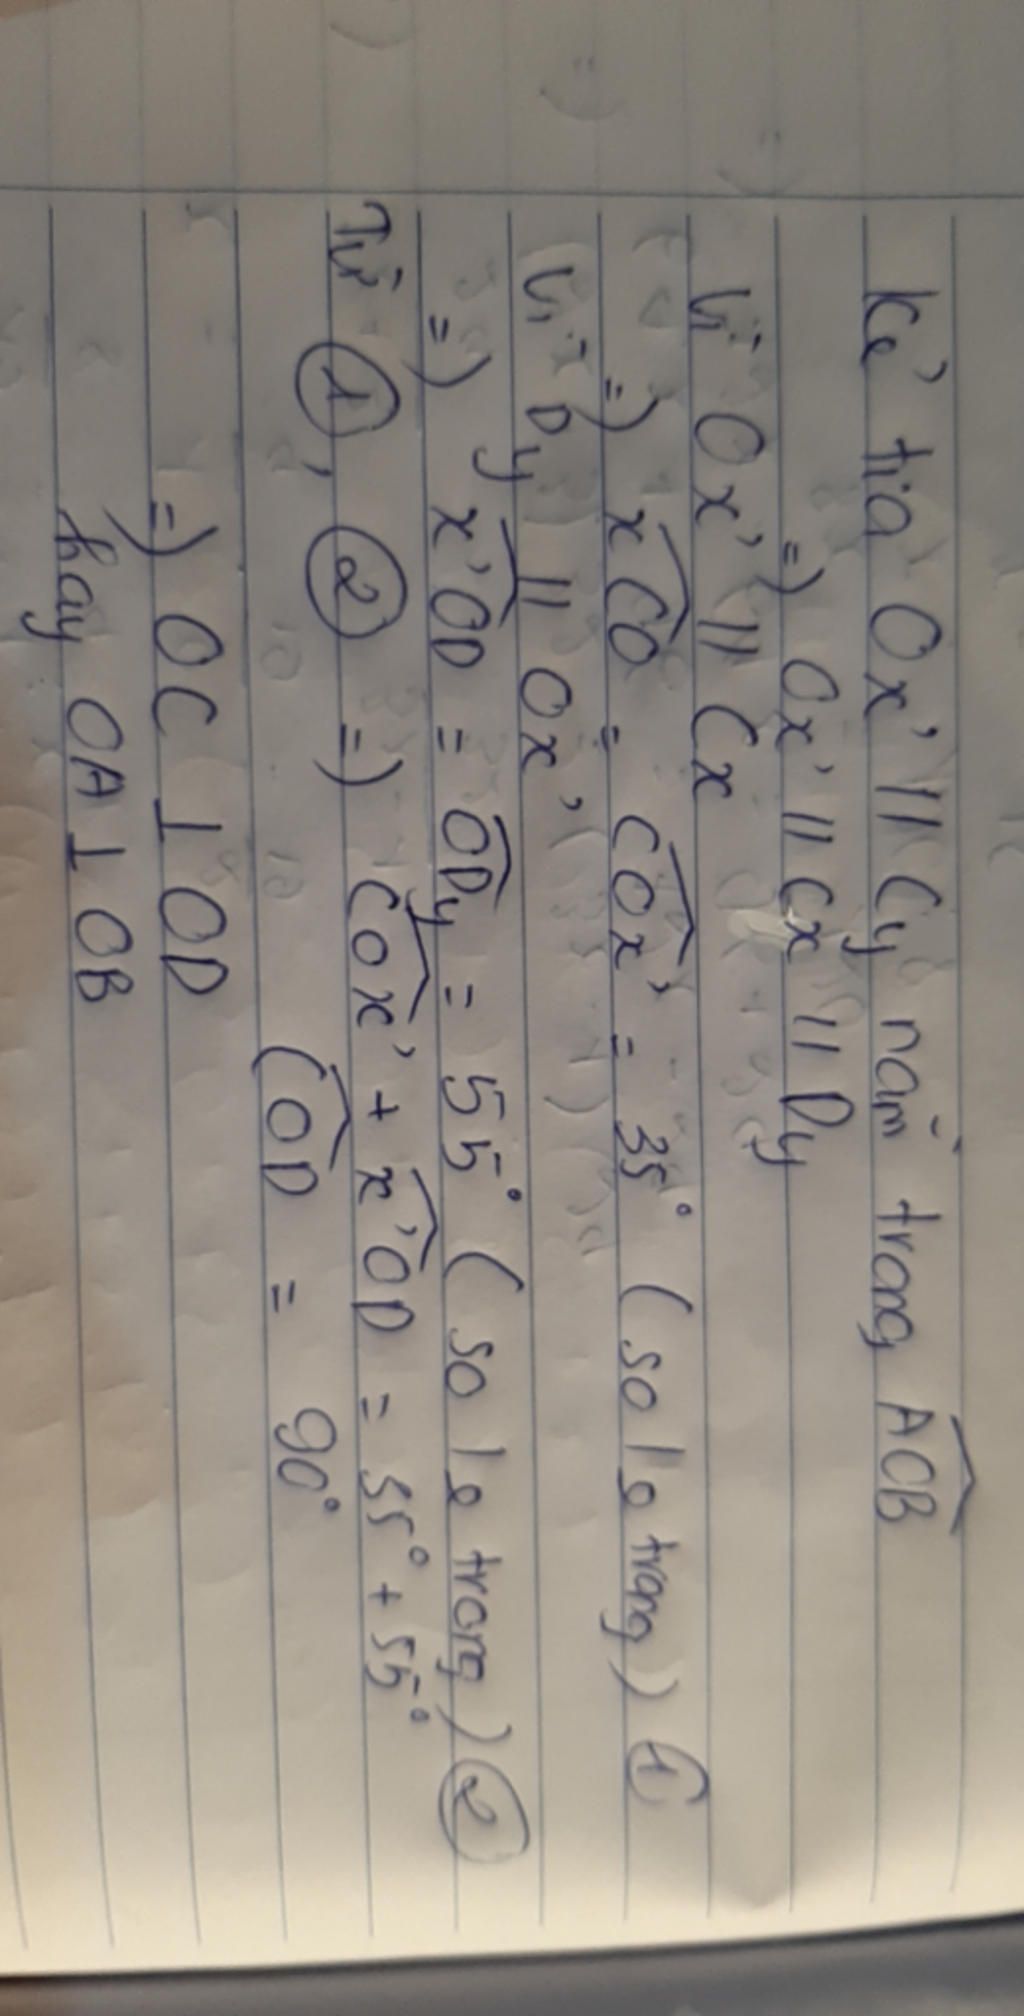 Kẻ tia Ox' // Cy nằm trong AOB
=) Ox' // Cx // Dy
Vì Ox' // Cx
=) xCO = COx' = 35° (so le trong) 1
Vì Dy // Ox'
=) x'OD = ODy = 55° (so le trong) 2
Từ 1, 2 =) COx' + x'OD = 35° + 55°
COD = 90°
=) OC ⊥ OD
hay OA ⊥ OB